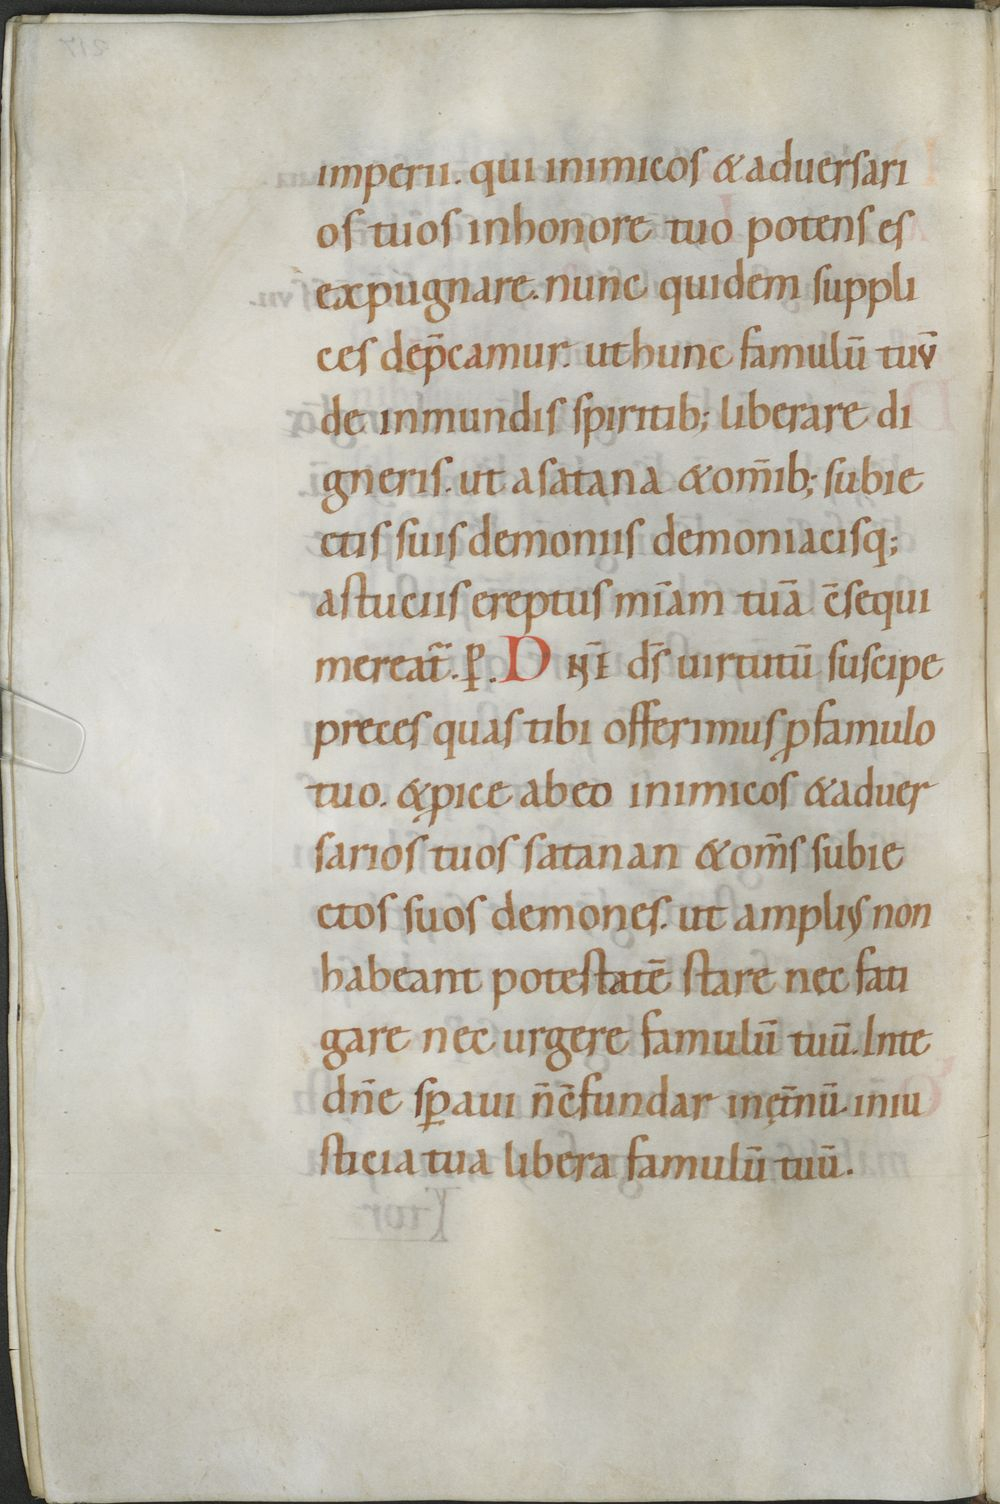 imperii. qui inimicos & aduersari
os tuos inhonore tuo potens es
expugnare. nunc quidem suppli
ces dep̄camur. ut hunc famulū tuū
de inmundis spiritib; liberare di
gneris. ut a satana & om̄ib; subie
ctis suis demoniis demoniacisq;
astuciis ereptus mīam tuā c̄sequi
mereat̄. P̄. D N̄I ds̄ uirtutū suscipe
preces quas tibi offerimus ꝓ famulo
tuo. & ꝓice ab eo inimicos & aduer
sarios tuos satanan & om̄s subie
ctos suos demones. ut amplius non
habeant potestatē stare nec fati
gare nec urgere famulū tuū. Inte
dn̄e sꝑaui n̄ c̄fundar in ęt̄nū. in iu
sticia tua libera famulū tuū.